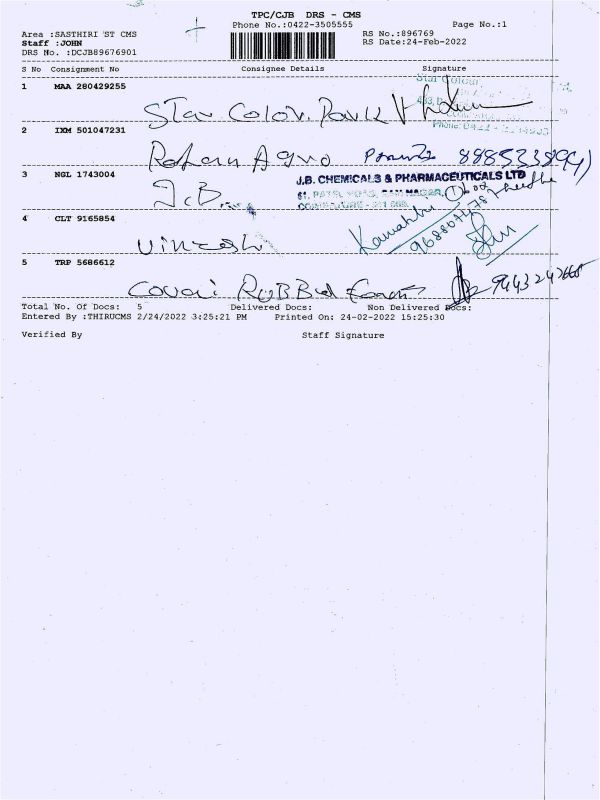 TPC/CJB DRS - CMS
Phone No.:0422-3505555
Page No.:1
Area :SASTHIRI ST CMS
RS No.:896769
Staff :JOHN
RS Date:24-Feb-2022
DRS No. :DCJB89676901
S No Consignment No Consignee Details Signature
Star Colour
1 MAA 280429255
Star Colour Park
2 IXM 501047231
Rohan Agro
3 NGL 1743004
J.B.
J.B. CHEMICALS & PHARMACEUTICALS LTD
61, PATEL ROAD, RAM NAGAR,
COIMBATORE -
4 CLT 9165854
Vinzoshi
5 TRP 5686612
Covai Rubber
Total No. Of Docs: 5 Delivered Docs: Non Delivered Docs:
Entered By :THIRUCMS 2/24/2022 3:25:21 PM Printed On: 24-02-2022 15:25:30
Verified By Staff Signature